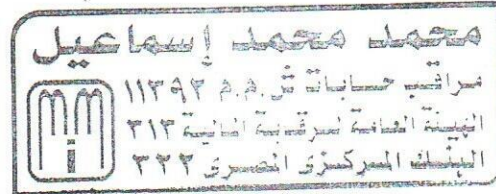 محمد محمد إسماعيل
مراقب حسابات س.م.م ١١٣٩٢
الهيئة العامة للرقابة المالية ٣١٣
البنك المركزى المصرى ٣٢٢